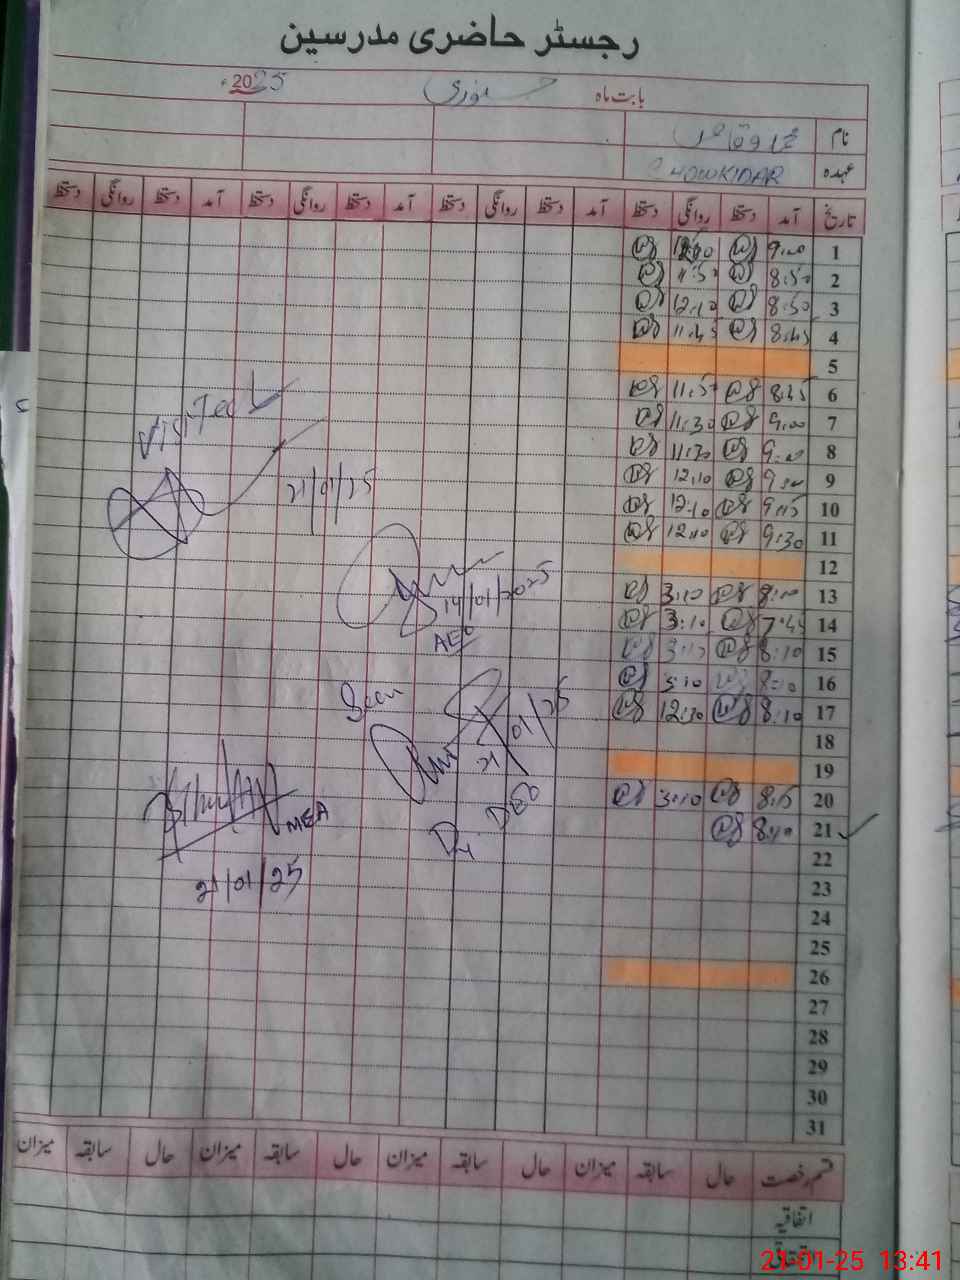 رجسٹر حاضری مدرسین
بابت ماہ جنوری 2025ء
نام
عہدہ CHOWKIDAR
تاریخ آمد دستخط روانگی دستخط آمد دستخط روانگی دستخط آمد دستخط روانگی دستخط آمد دستخط روانگی دستخط
1 9:00 12:10
2 8:50 11:50
3 8:50 12:10
4 8:45 11:45
5
6 8:45 11:50
7 9:00 11:30
8 9:00 11:30
9 9:00 12:10
10 9:15 12:10
11 9:30 12:10
12
13 8:00 3:10
14 7:45 3:10
15 8:10 3:10
16 8:10 3:10
17 8:10 12:30
18
19
20 8:15 3:10
21 8:10
22
23
24
25
26
27
28
29
30
31
Visited
21/01/25
14/01/2025
AEO
Seen
21/01/25
Dy. DEO
MEA
21/01/25
قسم رخصت حال سابقہ میزان حال سابقہ میزان حال سابقہ میزان حال سابقہ میزان
اتفاقیہ
21-01-25 13:41